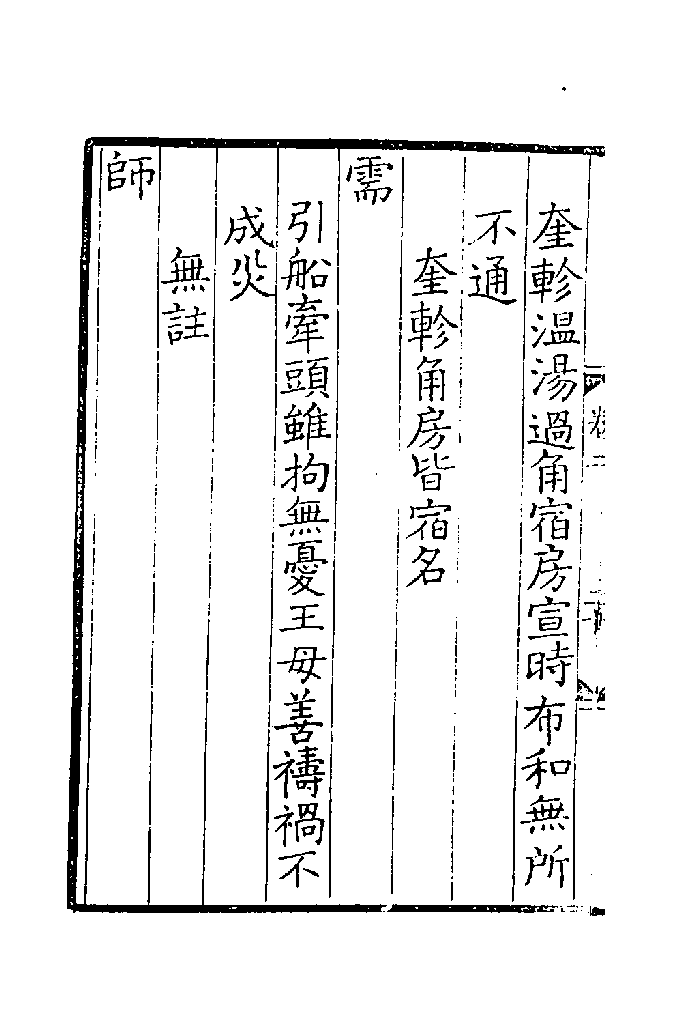 奎軫温湯過角宿房宣時布和無所
不通
奎軫角房皆宿名
需
引船牽頭雖拘無憂王母善禱禍不
成災
無註
師
卷二